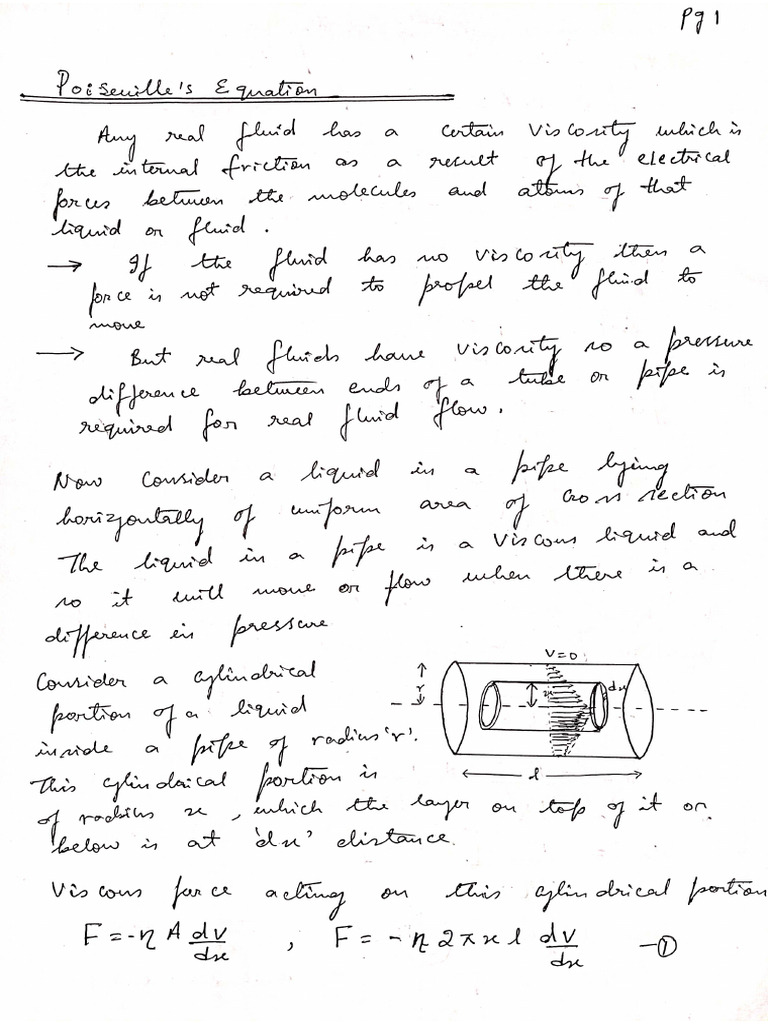 Pg 1
Poiseuille's Equation
Any real fluid has a certain viscosity which is
the internal friction as a result of the electrical
forces between the molecules and atoms of that
liquid or fluid.
→ If the fluid has no viscosity then a
force is not required to propel the fluid to
move
→ But real fluids have viscosity so a pressure
difference between ends of a tube or pipe is
required for real fluid flow.
Now consider a liquid in a pipe lying
horizontally of uniform area of cross section
The liquid in a pipe is a viscous liquid and
so it will move or flow when there is a
difference in pressure
Consider a cylindrical
portion of a liquid
inside a pipe of radius 'r'.
This cylindrical portion is
of radius x, which the layer on top of it or
below is at 'dx' distance.
V=0
r
x
dx
l
Viscous force acting on this cylindrical portion
F = -η A dv/dx , F = -η 2πxl dv/dx —①